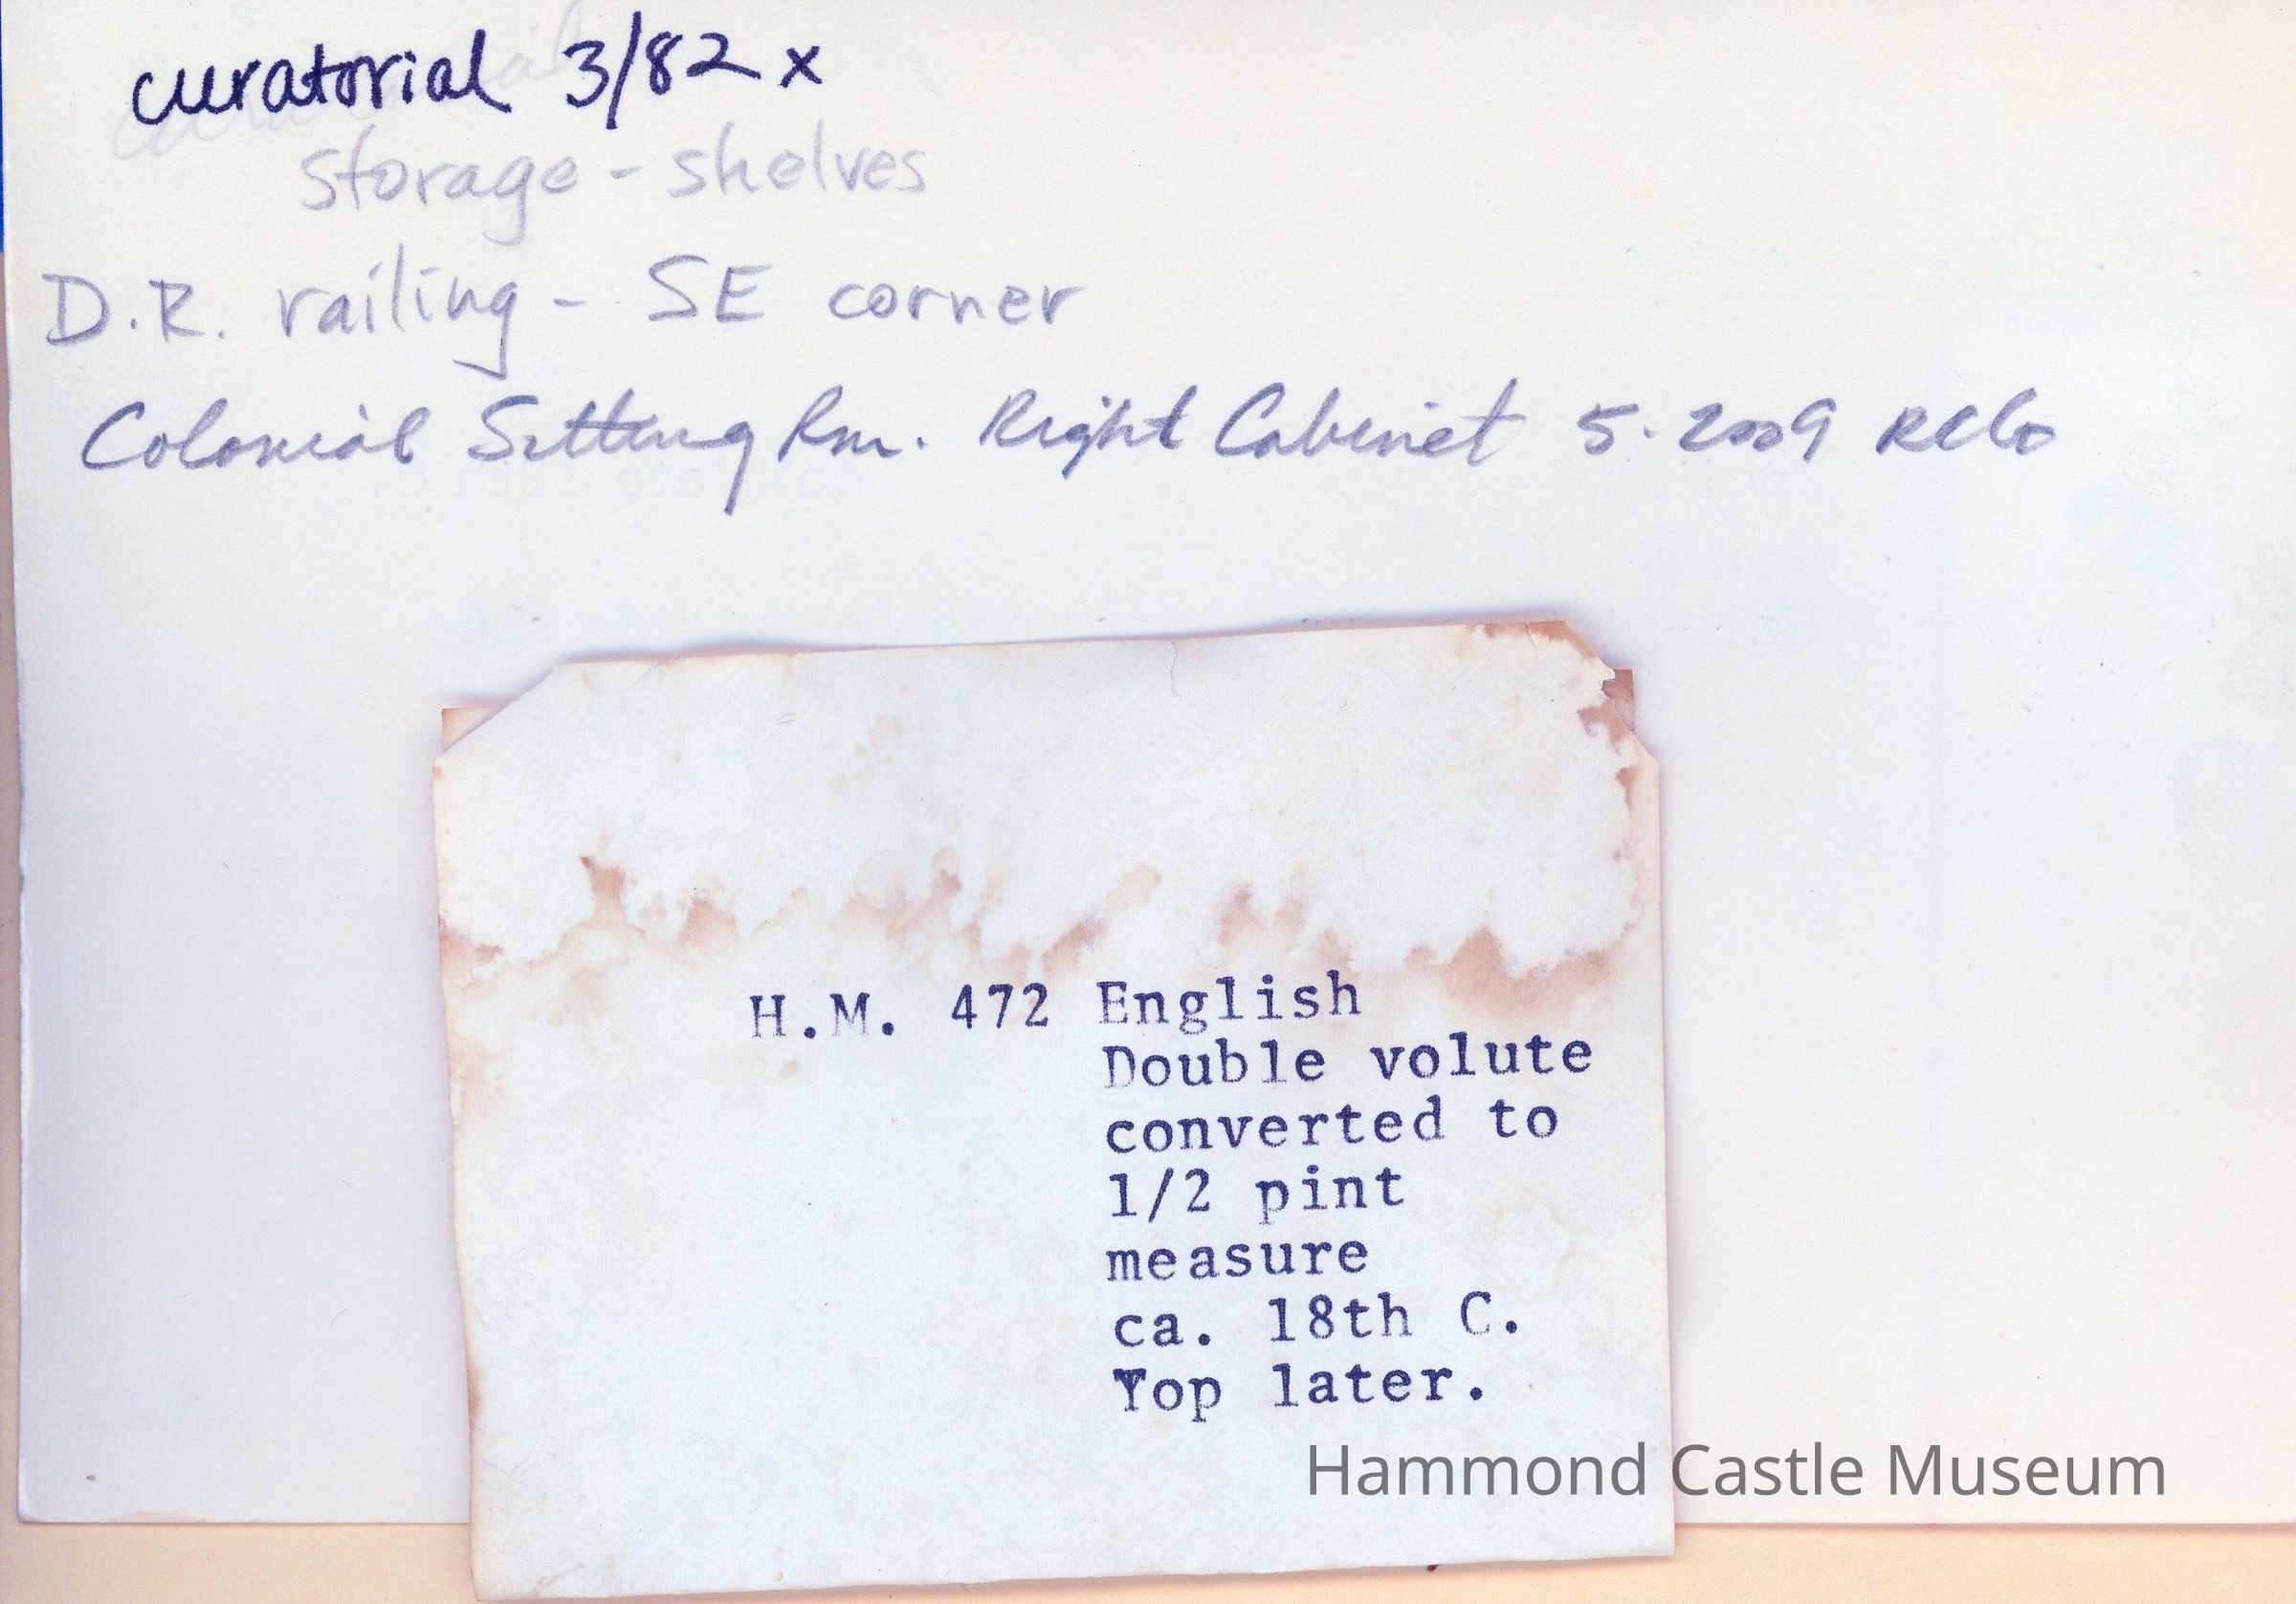 curatorial 3/82 x
storage - shelves
D.R. railing - SE corner
Colonial Sitting Rm. Right Cabinet 5.2009
H.M. 472 English
Double volute
converted to
1/2 pint
measure
ca. 18th C.
Top later.
Hammond Castle Museum